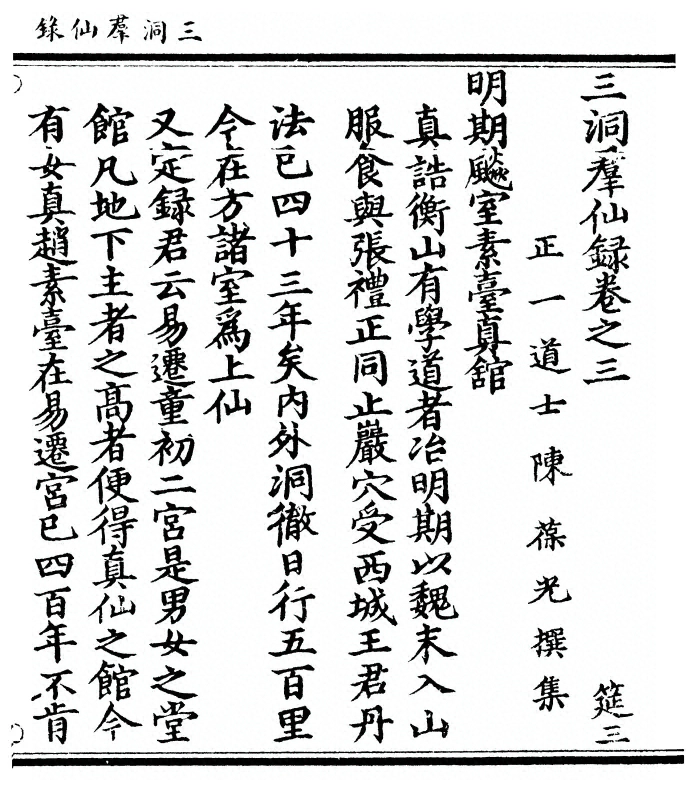 三洞羣仙錄
三洞羣仙録卷之三
筵三
正一道士陳葆光撰集
明期飈室素臺真舘
真誥衡山有學道者冶明期以魏末入山
服食與張禮正同止巖穴受西城王君丹
法已四十三年矣内外洞徹日行五百里
今在方諸室爲上仙
又定録君云易遷童初二宮是男女之堂
館凡地下主者之高者便得真仙之館今
有女真趙素臺在易遷宮已四百年不肯